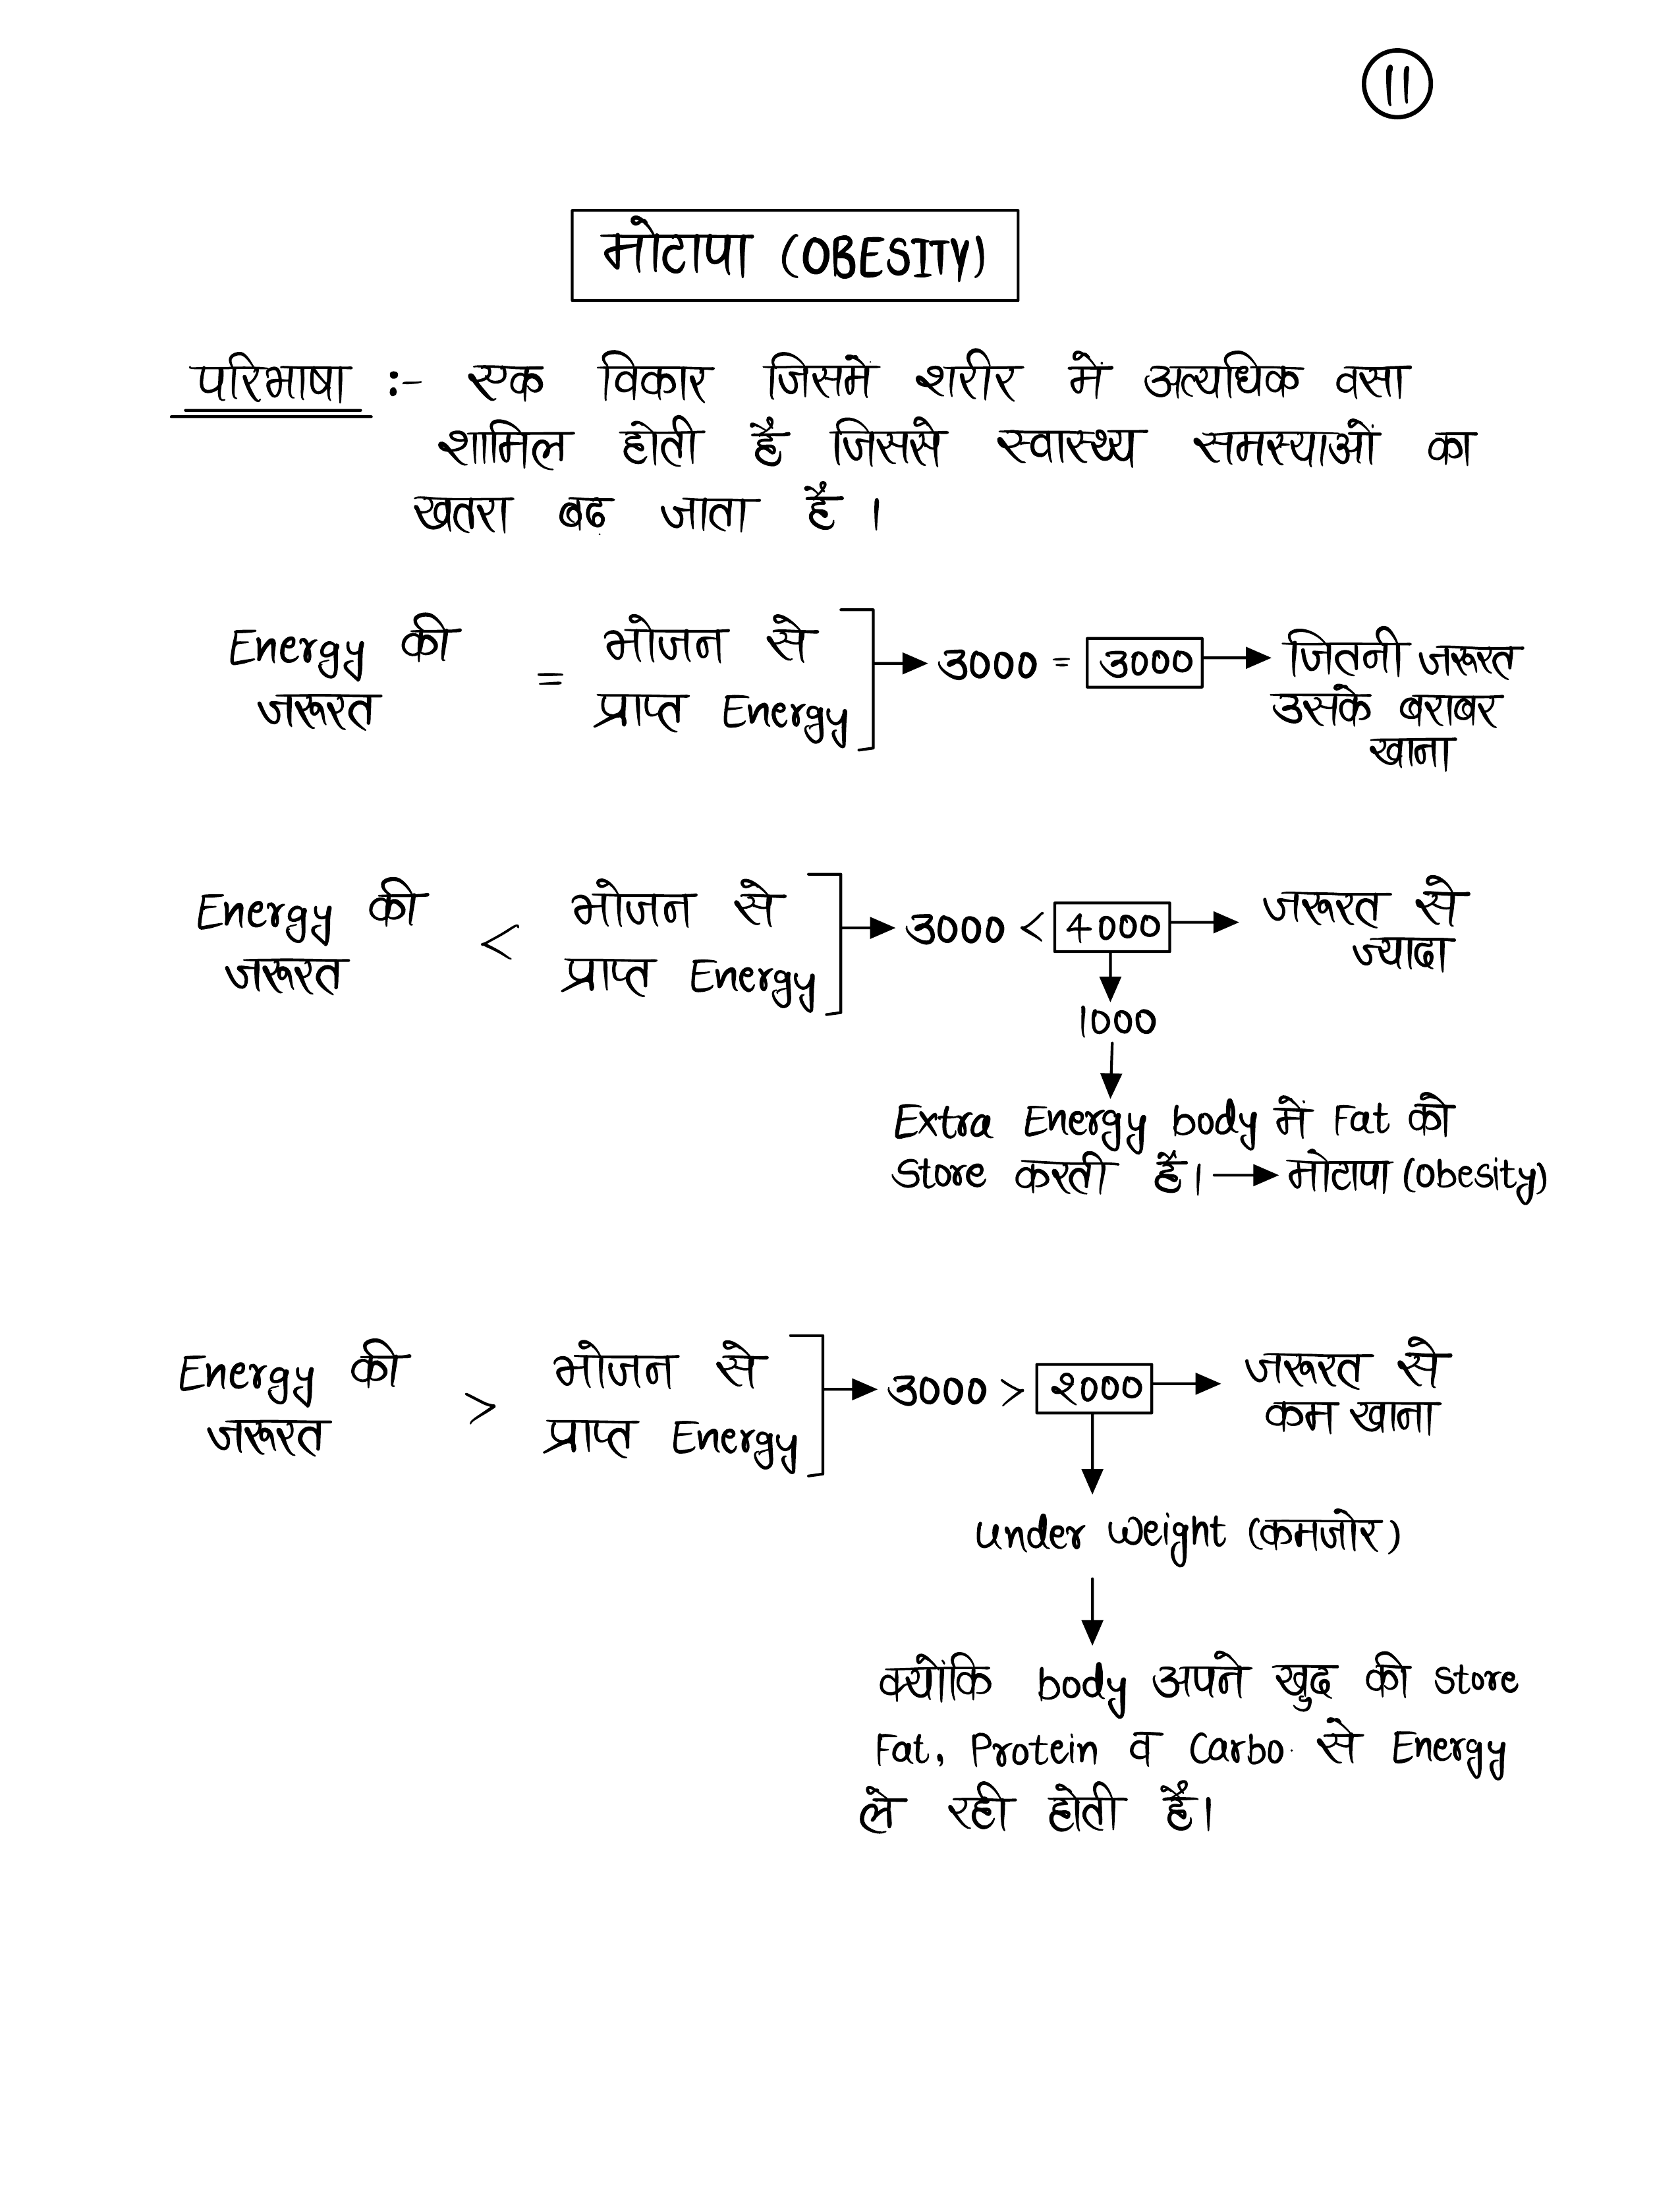 11
मोटापा (OBESITY)
परिभाषा :- एक विकार जिसमें शरीर में अत्यधिक वसा
शामिल होती हैं जिससे स्वास्थ्य समस्याओं का
खतरा बढ़ जाता हैं ।
Energy की जरूरत = भोजन से प्राप्त Energy → 3000 = 3000 → जितनी जरूरत
उसके बराबर
खाना
Energy की जरूरत < भोजन से प्राप्त Energy → 3000 < 4000 → जरूरत से
ज्यादा
1000
Extra Energy body में Fat को
Store करती हैं। → मोटापा (obesity)
Energy की जरूरत > भोजन से प्राप्त Energy → 3000 > 2000 → जरूरत से
कम खाना
under weight (कमजोर)
क्योंकि body अपने खुद की store
Fat, Protein व Carbo. से Energy
ले रही होती हैं।